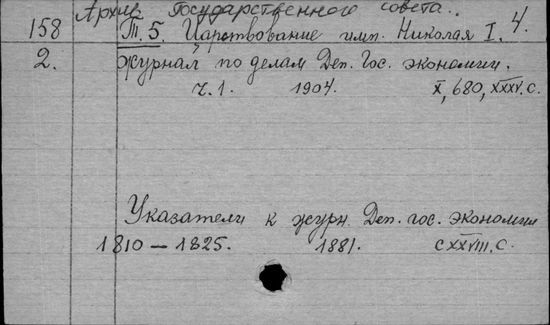 Архив Государственного совета. 4.
158 Т. 5. Царствование имп. Николая I.
2. Журнал по делам Деп. Гос. экономии.
ч. 1. 1904. X, 680, XXXV. с.
Указатели к журн. Деп. гос. экономии
1810 – 1825. 1881. CXXVIII. с.